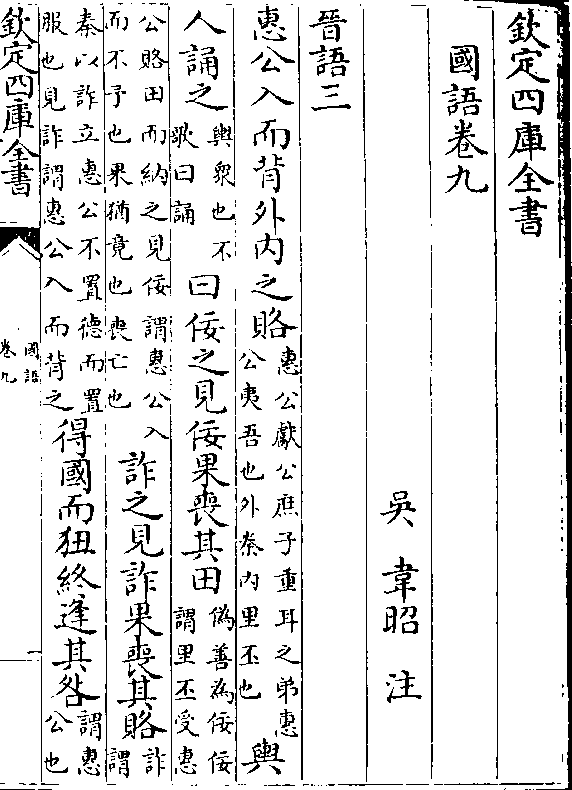 欽定四庫全書
國語卷九
吳 韋昭 注
晉語三
惠公入而背外内之賂惠公獻公庶子重耳之弟惠公夷吾也外秦内里丕也輿
人誦之輿衆也不歌曰誦曰佞之見佞果喪其田偽善為佞佞謂里丕受惠
公賂田而納之見佞謂惠公入而不予也果猶竟也喪亡也詐之見詐果喪其賂詐謂
秦以詐立惠公不置德而置服也見詐謂惠公入而背之得國而狃終逢其咎謂惠公也
欽定四庫全書
國語
卷九
一